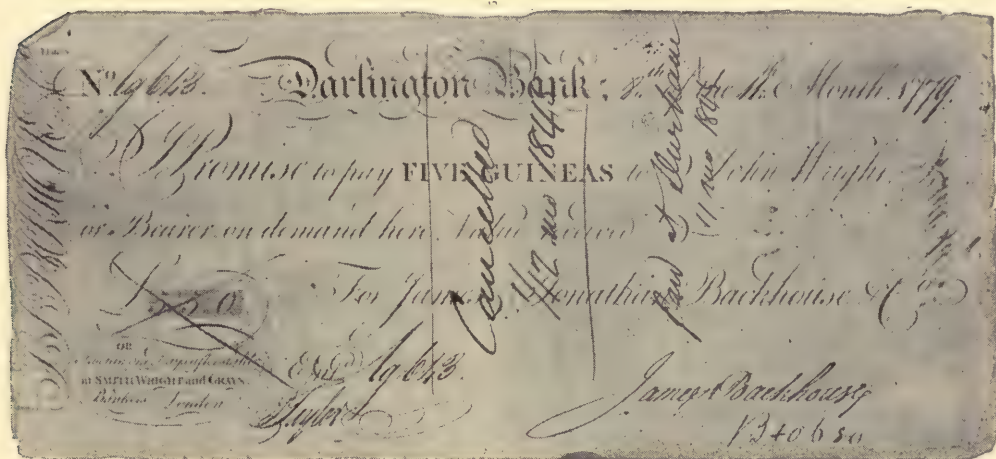 No. 19643. Darlington Bank; the Month 1779.
I Promise to pay FIVE GUINEAS to John Wright
or Bearer on demand here Value received
£5.5.0 For James & Jonathan Backhouse & Co
OR
at SMITH WRIGHT and GRAYS
Bankers London
Entd. 19643.
Taylor
James Backhouse
Cancelled
12 mo 184
Paid at Durham
11 mo